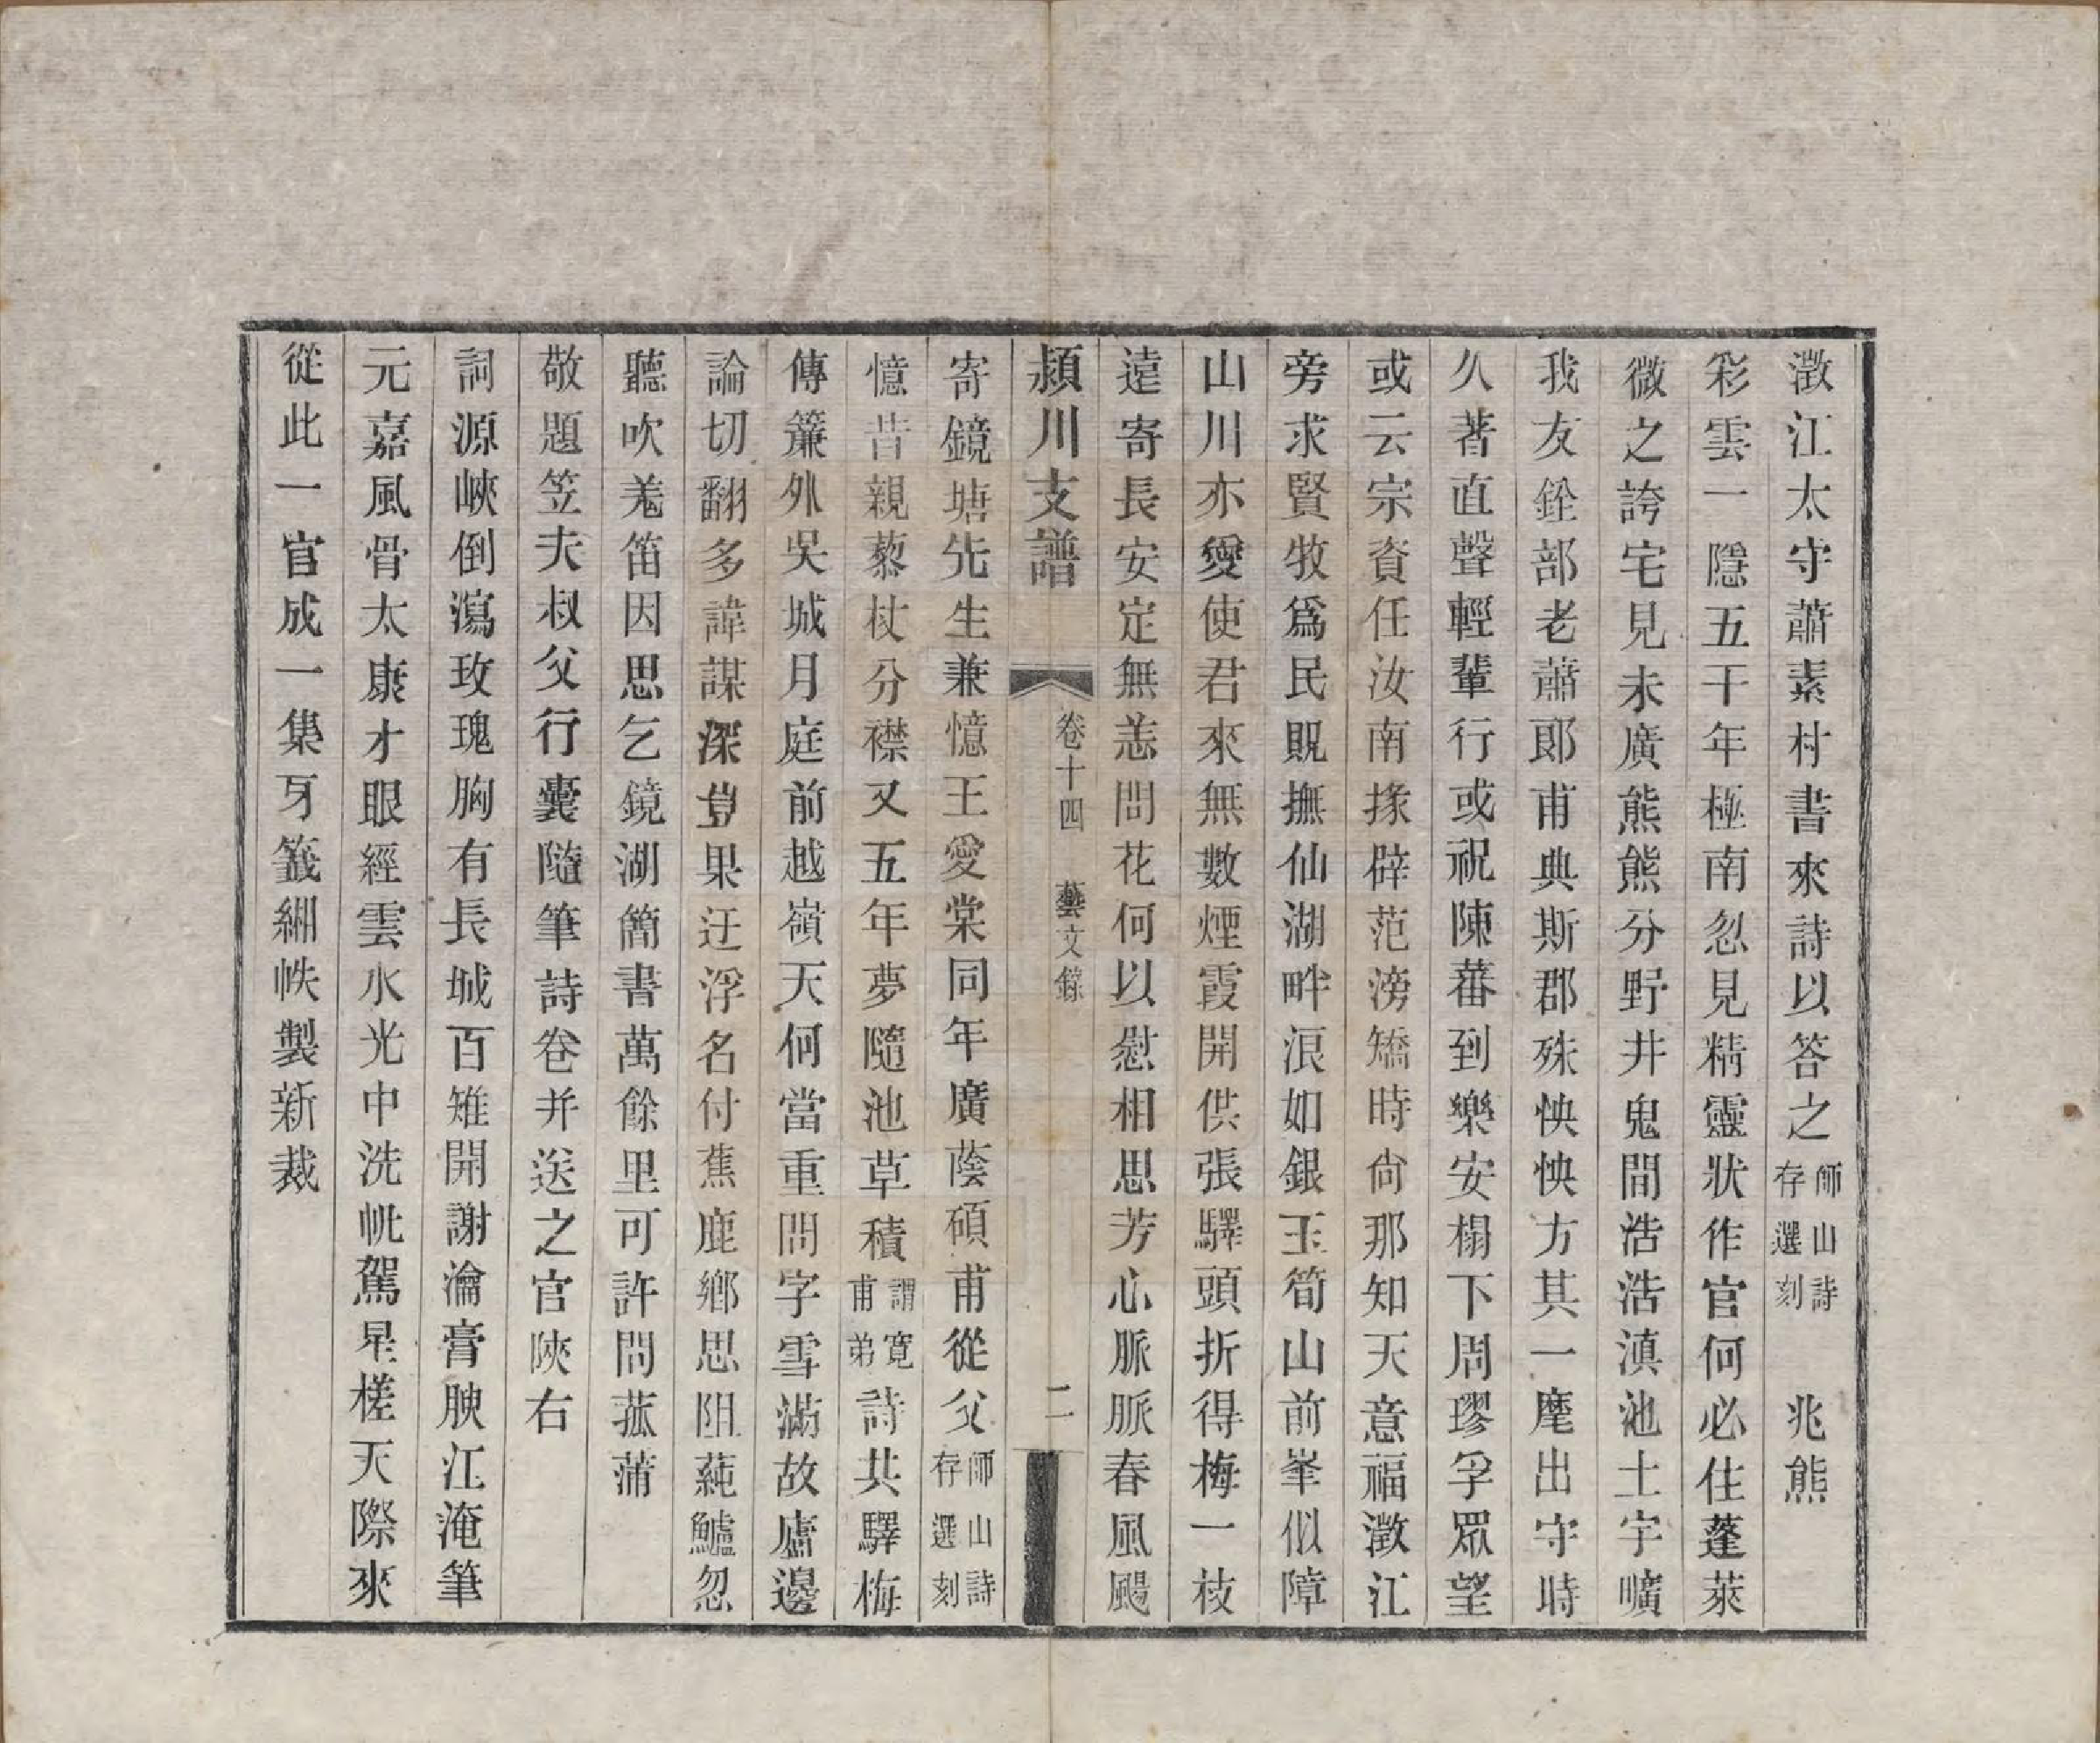 澂江太守蕭素村書來詩以答之師山詩存選刻　兆熊
彩雲一隱五千年極南忽見精靈狀作官何必住蓬萊
微之誇宅見未廣熊熊分野井鬼間浩浩滇池土宇曠
我友銓部老蕭郎甫典斯郡殊怏怏方其一麾出守時
久著直聲輕輩行或祝陳蕃到樂安榻下周璆孚眾望
或云宗資任汝南掾辟范滂矯時尙那知天意福澂江
旁求賢牧爲民貺撫仙湖畔浪如銀玉筍山前峯似障
山川亦愛使君來無數煙霞開供張驛頭折得梅一枝
遠寄長安定無恙問花何以慰相思芳心脈脈春風颺
潁川支譜　卷十四　藝文錄　二
寄鏡塘先生兼憶王愛棠同年廣蔭碩甫從父師山詩存選刻
憶昔親藜杖分襟又五年夢隨池草積謂寬甫弟詩共驛梅
傳簾外吳城月庭前越嶺天何當重問字雪滿故廬邊
論切翻多諱謀深豈果迂浮名付蕉鹿鄉思阻蒓鱸忽
聽吹羗笛因思乞鏡湖簡書萬餘里可許問菰蒲
敬題笠夫叔父行囊隨筆詩卷并送之官陝右
詞源峽倒瀉玫瑰胸有長城百雉開謝瀹膏腴江淹筆
元嘉風骨太康才眼經雲水光中洗帆駕星槎天際來
從此一官成一集牙籤緗帙製新裁